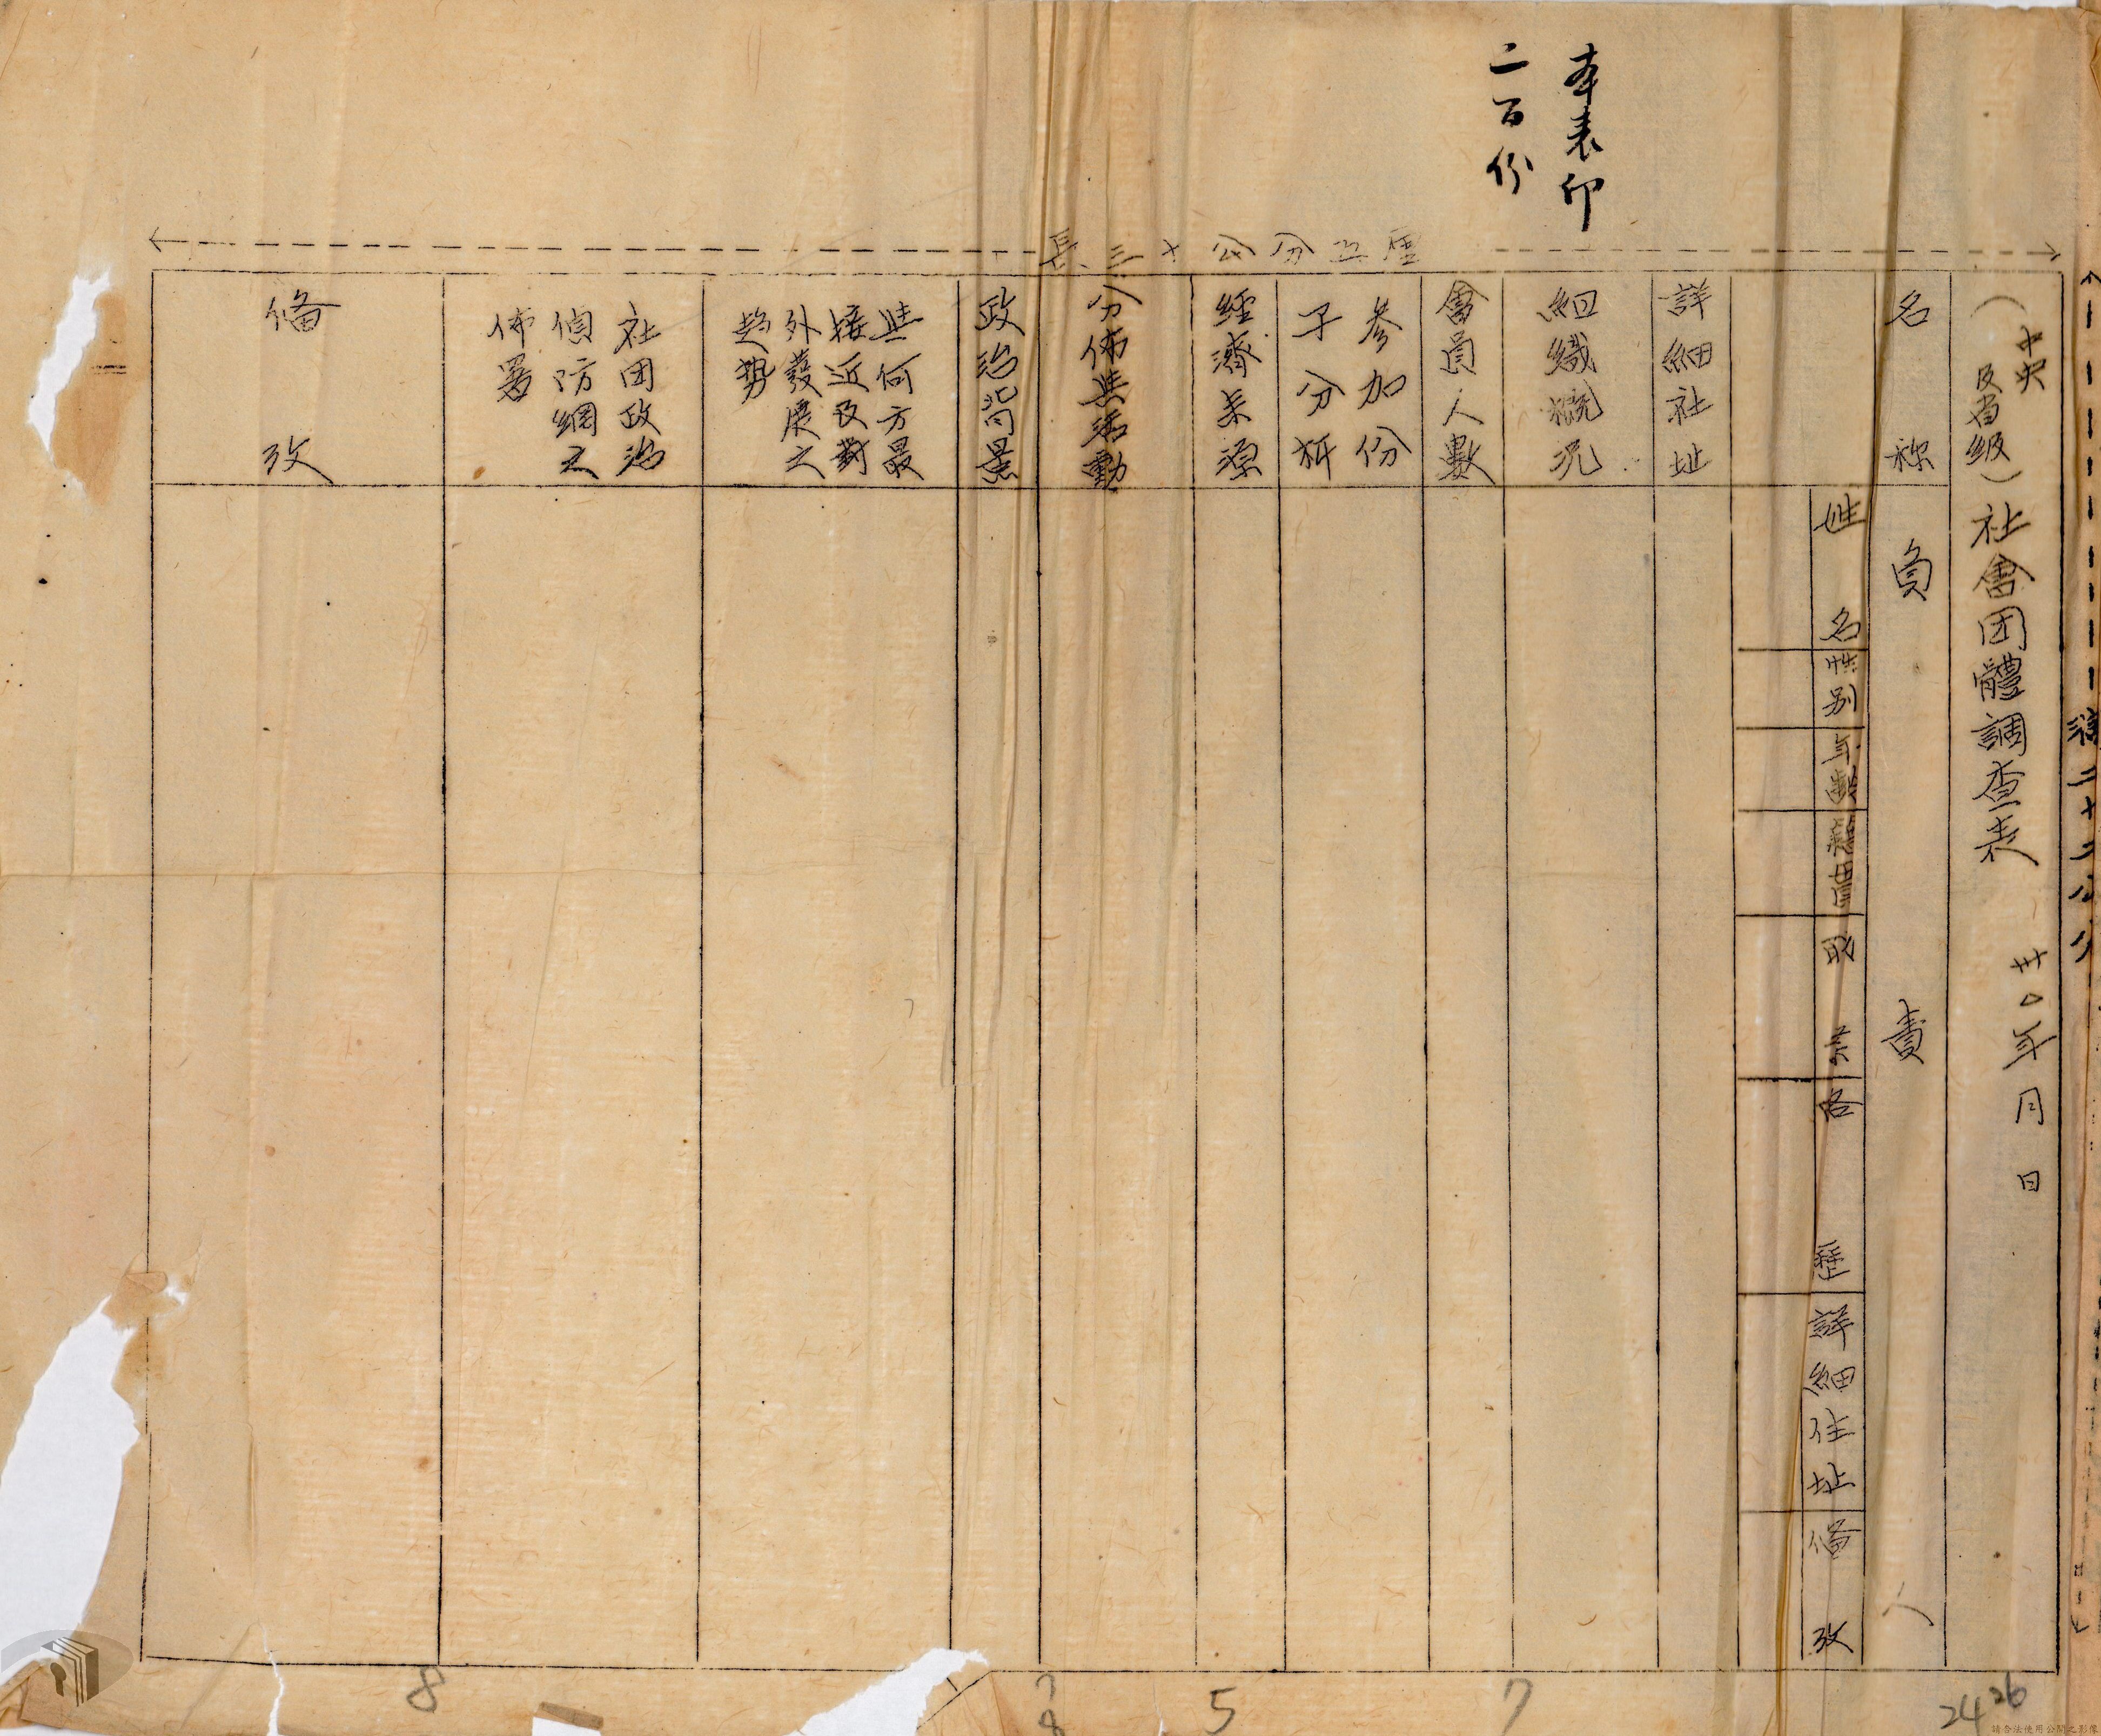 本表印
二百份
長三十公分五厘
橫二十二公分
(中央及省級)社會团體調查表
卅 年 月 日
名称
負責人
姓名
性别
年齡
籍貫
略歷
詳細住址
備攷
詳細社址
組織概况
會員人數
參加份
子分析
經濟来源
分佈與活動
政治背景
與何方最
接近及對
外發展之
趋势
社团政治
偵防網之
佈署
備攷
8
5
7
24 26
請合法使用公開之影像